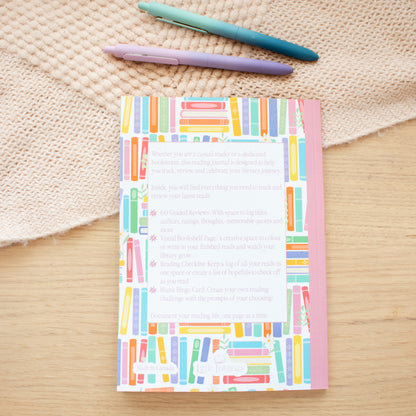 Whether you are a casual reader or a dedicated
bookworm, this reading journal is designed to help
you track, review and celebrate your literary journey.
Inside, you will find everything you need to track and
review your latest reads
60 Guided Reviews: With space to log titles,
authors, ratings, thoughts, memorable quotes and
more
Visual Bookshelf Page: A creative space to colour
or write in your finished reads and watch your
library grow
Reading Checklist: Keep a log of all your reads in
one space or create a list of hopefuls to check off
as you read
Blank Bingo Card: Create your own reading
challenge with the prompts of your choosing!
Document your reading life, one page at a time